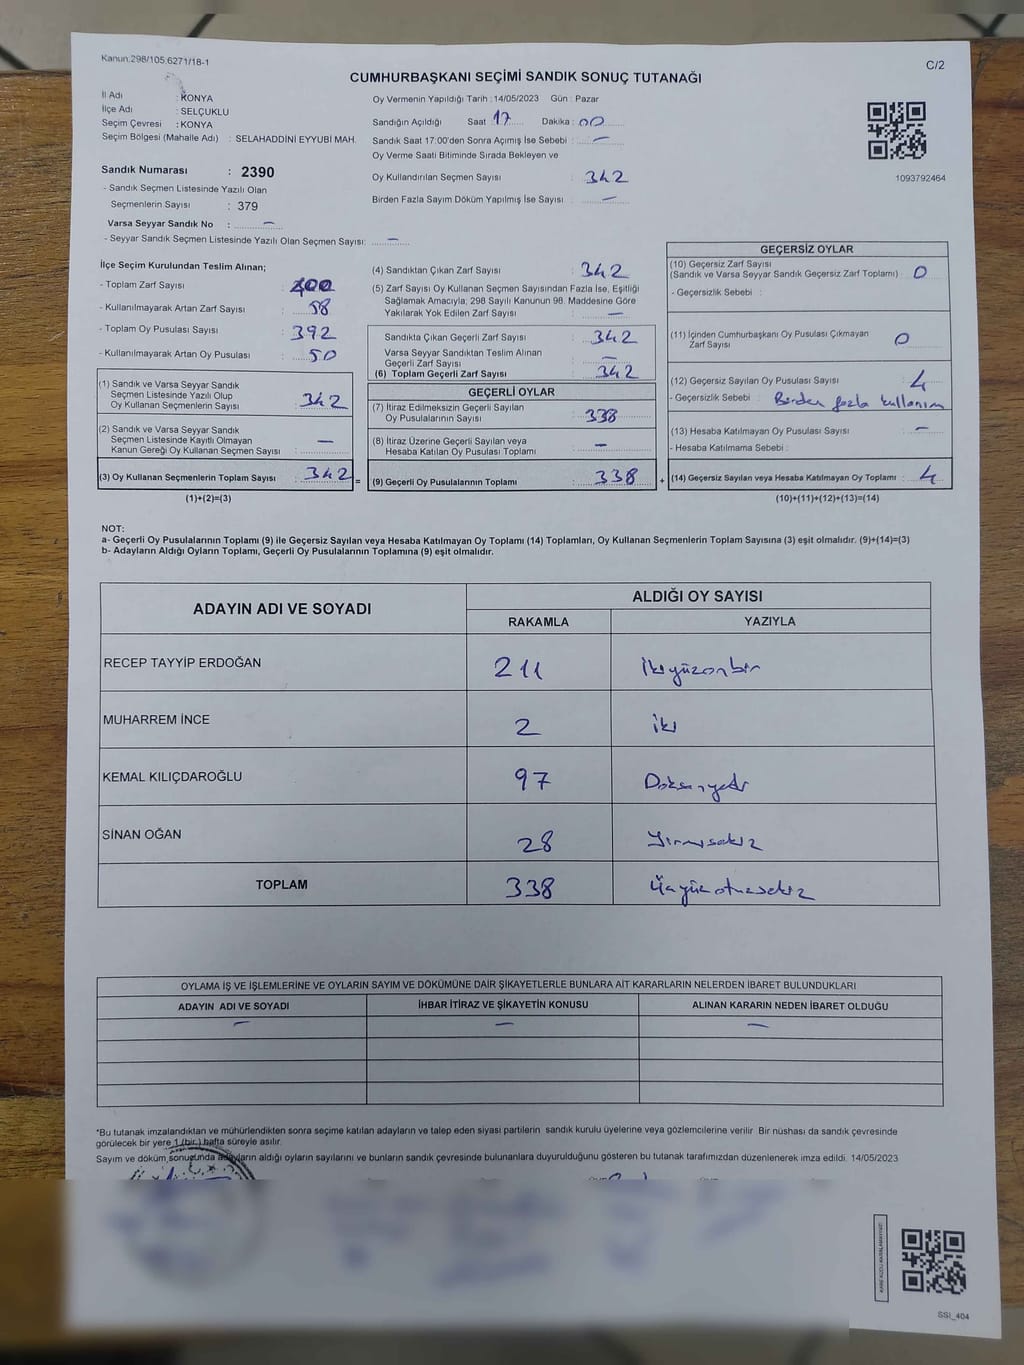 Kanun:298/105.6271/18-1
C/2
CUMHURBAŞKANI SEÇİMİ SANDIK SONUÇ TUTANAĞI
İl Adı : KONYA
İlçe Adı : SELÇUKLU
Seçim Çevresi : KONYA
Seçim Bölgesi (Mahalle Adı) : SELAHADDİNİ EYYUBİ MAH.
Sandık Numarası : 2390
- Sandık Seçmen Listesinde Yazılı Olan
Seçmenlerin Sayısı : 379
Varsa Seyyar Sandık No : —
- Seyyar Sandık Seçmen Listesinde Yazılı Olan Seçmen Sayısı: —
Oy Vermenin Yapıldığı Tarih :14/05/2023 Gün : Pazar
Sandığın Açıldığı Saat 17 Dakika : 00
Sandık Saat 17:00'den Sonra Açımış İse Sebebi : —
Oy Verme Saati Bitiminde Sırada Bekleyen ve
Oy Kullandırılan Seçmen Sayısı : 342
Birden Fazla Sayım Döküm Yapılmış İse Sayısı : —
1093792464
İlçe Seçim Kurulundan Teslim Alınan;
- Toplam Zarf Sayısı : 400
- Kullanılmayarak Artan Zarf Sayısı : 58
- Toplam Oy Pusulası Sayısı : 392
- Kullanılmayarak Artan Oy Pusulası : 50
(1) Sandık ve Varsa Seyyar Sandık
Seçmen Listesinde Yazılı Olup
Oy Kullanan Seçmenlerin Sayısı : 342
(2) Sandık ve Varsa Seyyar Sandık
Seçmen Listesinde Kayıtlı Olmayan
Kanun Gereği Oy Kullanan Seçmen Sayısı : —
(3) Oy Kullanan Seçmenlerin Toplam Sayısı : 342 =
(1)+(2)=(3)
(4) Sandıktan Çıkan Zarf Sayısı : 342
(5) Zarf Sayısı Oy Kullanan Seçmen Sayısından Fazla İse, Eşitliği
Sağlamak Amacıyla; 298 Sayılı Kanunun 98. Maddesine Göre
Yakılarak Yok Edilen Zarf Sayısı : —
Sandıkta Çıkan Geçerli Zarf Sayısı : 342
Varsa Seyyar Sandıktan Teslim Alınan
Geçerli Zarf Sayısı : —
(6) Toplam Geçerli Zarf Sayısı : 342
GEÇERLİ OYLAR
(7) İtiraz Edilmeksizin Geçerli Sayılan
Oy Pusulalarının Sayısı : 338
(8) İtiraz Üzerine Geçerli Sayılan veya
Hesaba Katılan Oy Pusulası Toplamı : —
(9) Geçerli Oy Pusulalarının Toplamı : 338 +
GEÇERSİZ OYLAR
(10) Geçersiz Zarf Sayısı
(Sandık ve Varsa Seyyar Sandık Geçersiz Zarf Toplamı) : 0
- Geçersizlik Sebebi :
(11) İçinden Cumhurbaşkanı Oy Pusulası Çıkmayan
Zarf Sayısı : 0
(12) Geçersiz Sayılan Oy Pusulası Sayısı : 4
- Geçersizlik Sebebi : Birden fazla kullanım
(13) Hesaba Katılmayan Oy Pusulası Sayısı : —
- Hesaba Katılmama Sebebi :
(14) Geçersiz Sayılan veya Hesaba Katılmayan Oy Toplamı : 4
(10)+(11)+(12)+(13)=(14)
NOT:
a- Geçerli Oy Pusulalarının Toplamı (9) ile Geçersiz Sayılan veya Hesaba Katılmayan Oy Toplamı (14) Toplamları, Oy Kullanan Seçmenlerin Toplam Sayısına (3) eşit olmalıdır. (9)+(14)=(3)
b- Adayların Aldığı Oyların Toplamı, Geçerli Oy Pusulalarının Toplamına (9) eşit olmalıdır.
ADAYIN ADI VE SOYADI
ALDIĞI OY SAYISI
RAKAMLA YAZIYLA
RECEP TAYYİP ERDOĞAN 211 İkiyüzonbir
MUHARREM İNCE 2 iki
KEMAL KILIÇDAROĞLU 97 Doksanyedi
SİNAN OĞAN 28 Yirmisekiz
TOPLAM 338 Üçyüzotuzsekiz
OYLAMA İŞ VE İŞLEMLERİNE VE OYLARIN SAYIM VE DÖKÜMÜNE DAİR ŞİKAYETLERLE BUNLARA AİT KARARLARIN NELERDEN İBARET BULUNDUKLARI
ADAYIN ADI VE SOYADI İHBAR İTİRAZ VE ŞİKAYETİN KONUSU ALINAN KARARIN NEDEN İBARET OLDUĞU
— — —
*Bu tutanak imzalandıktan ve mühürlendikten sonra seçime katılan adayların ve talep eden siyasi partilerin sandık kurulu üyelerine veya gözlemcilerine verilir. Bir nüshası da sandık çevresinde
görülecek bir yere 1 (bir) hafta süreyle asılır.
Sayım ve döküm sonucunda adayların aldığı oyların sayılarını ve bunların sandık çevresinde bulunanlara duyurulduğunu gösteren bu tutanak tarafımızdan düzenlenerek imza edildi. 14/05/2023
KARE KODU KARALAMAYINIZ!
SSI_404